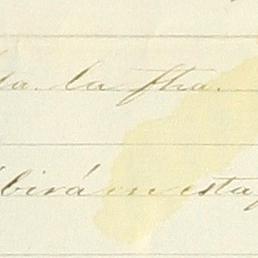 da. la fha.
ibirá en esta